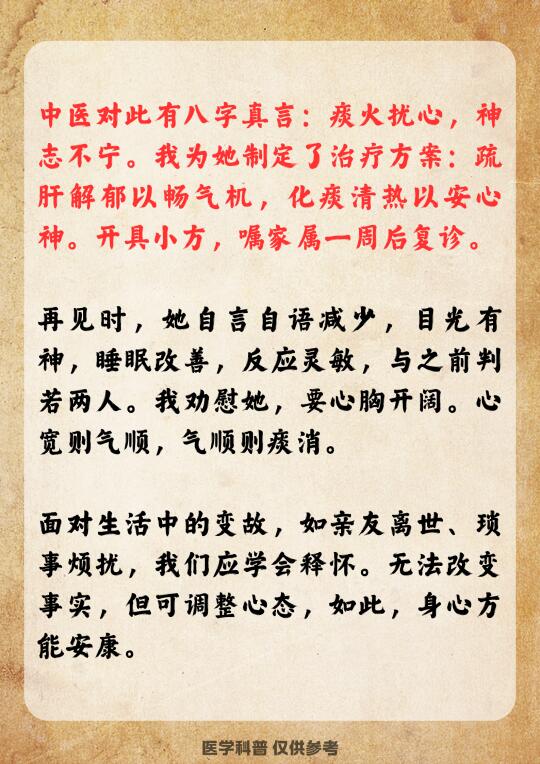 中医对此有八字真言：痰火扰心，神
志不宁。我为她制定了治疗方案：疏
肝解郁以畅气机，化痰清热以安心
神。开具小方，嘱家属一周后复诊。
再见时，她自言自语减少，目光有
神，睡眠改善，反应灵敏，与之前判
若两人。我劝慰她，要心胸开阔。心
宽则气顺，气顺则痰消。
面对生活中的变故，如亲友离世、琐
事烦扰，我们应学会释怀。无法改变
事实，但可调整心态，如此，身心方
能安康。
医学科普 仅供参考